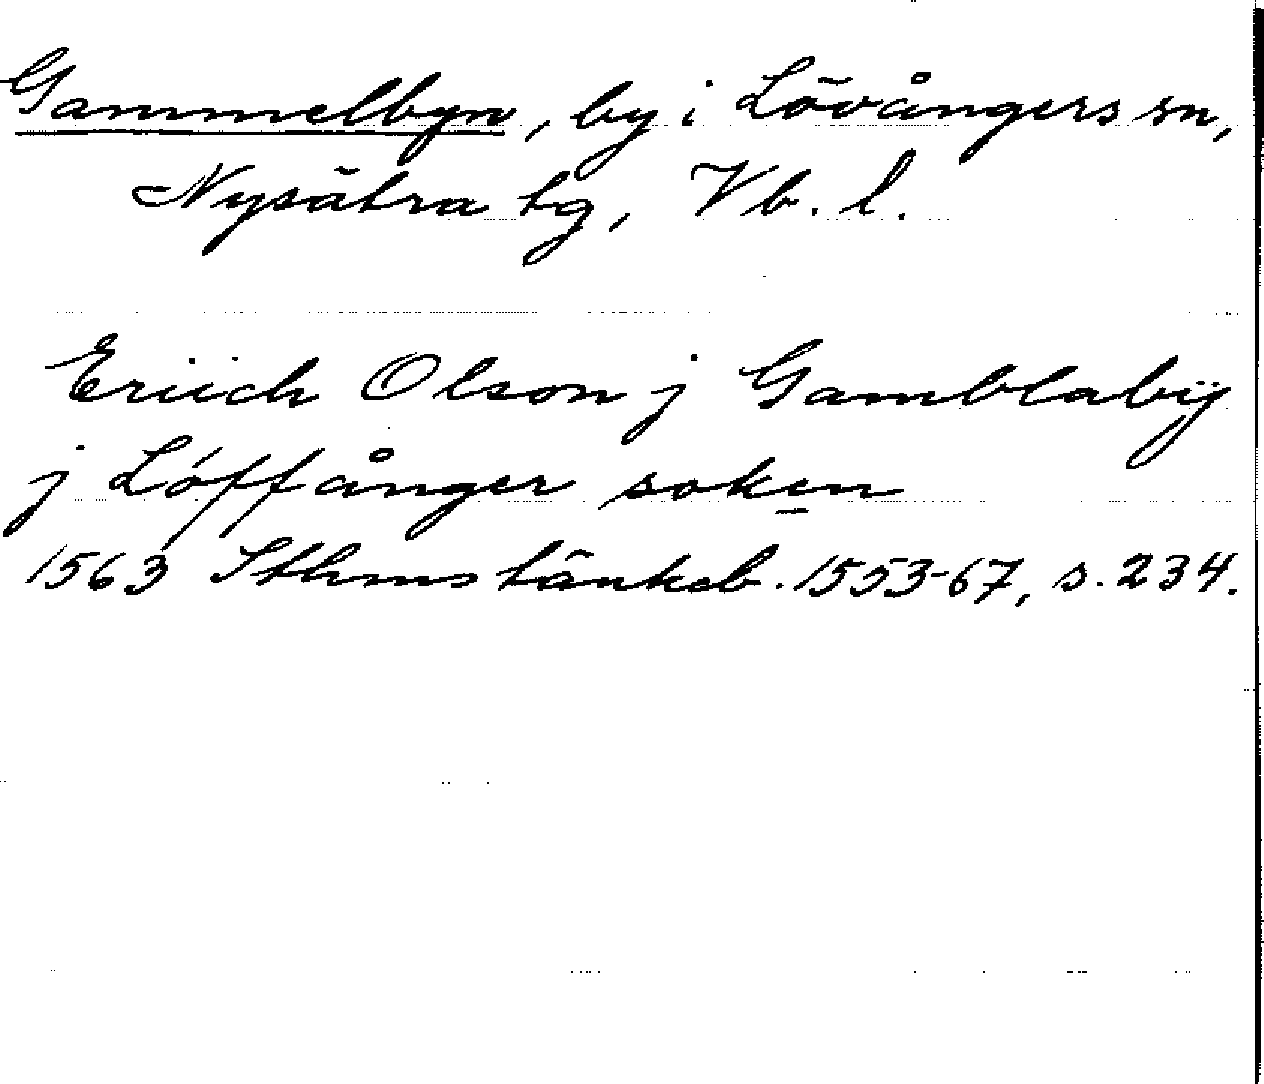 Gammelbyn, by i Lövångers sn,
Nysätra tg, Vb. l.
Eriich Olson j Gamblabÿ
j Löffånger soken
1563 Sthms tänkeb. 1553-67, s. 234.